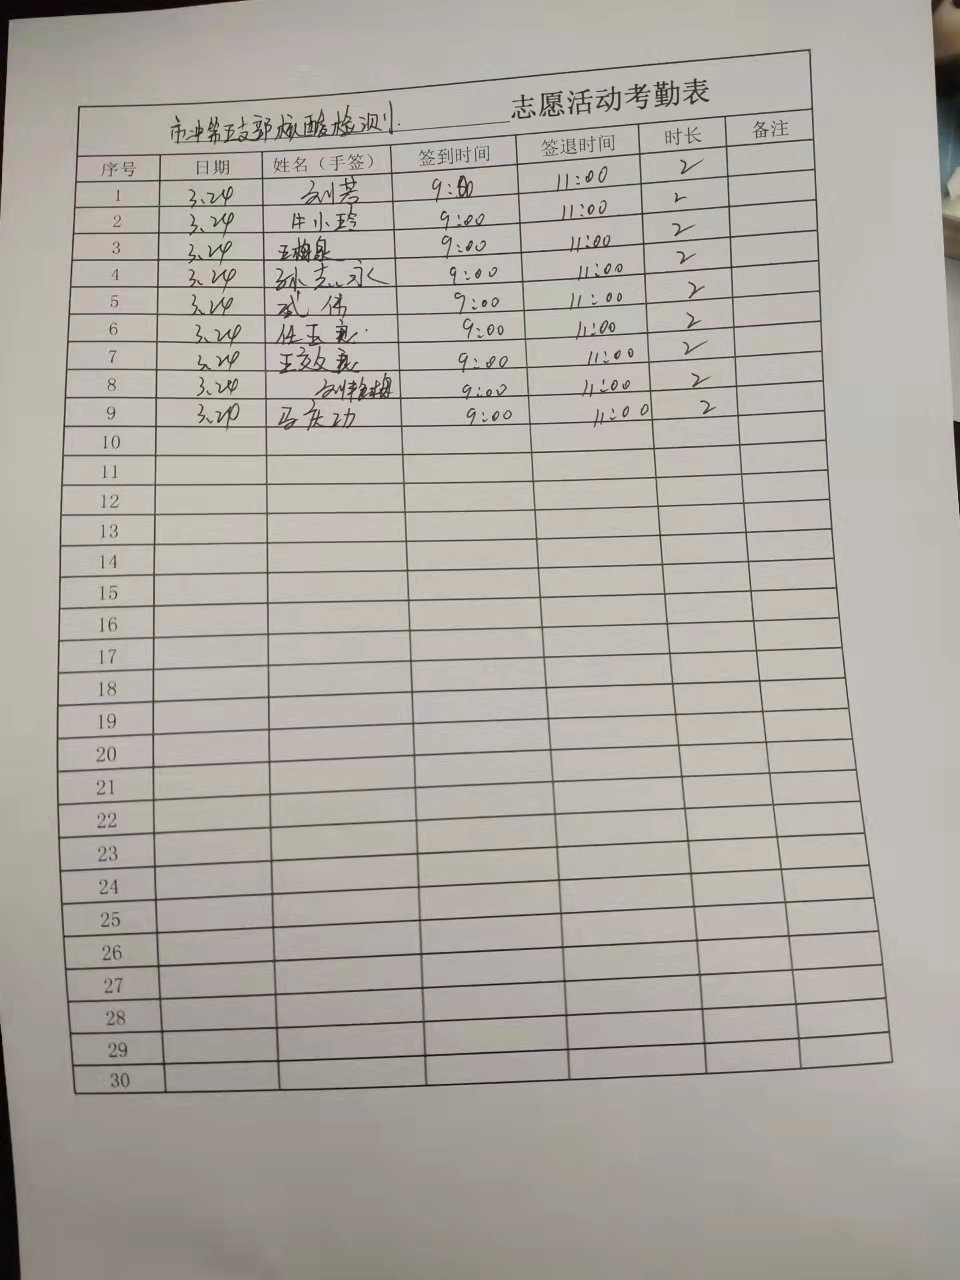 市冲第五支部核酸检测 志愿活动考勤表
序号 日期 姓名（手签） 签到时间 签退时间 时长 备注
1 3.24 刘若 9:00 11:00 2
2 3.24 牛小玲 9:00 11:00 2
3 3.24 王梅泉 9:00 11:00 2
4 3.24 孙志永 9:00 11:00 2
5 3.24 武伟 9:00 11:00 2
6 3.24 任玉良 9:00 11:00 2
7 3.24 王效良 9:00 11:00 2
8 3.24 刘 9:00 11:00 2
9 3.24 马庆功 9:00 11:00 2
10
11
12
13
14
15
16
17
18
19
20
21
22
23
24
25
26
27
28
29
30